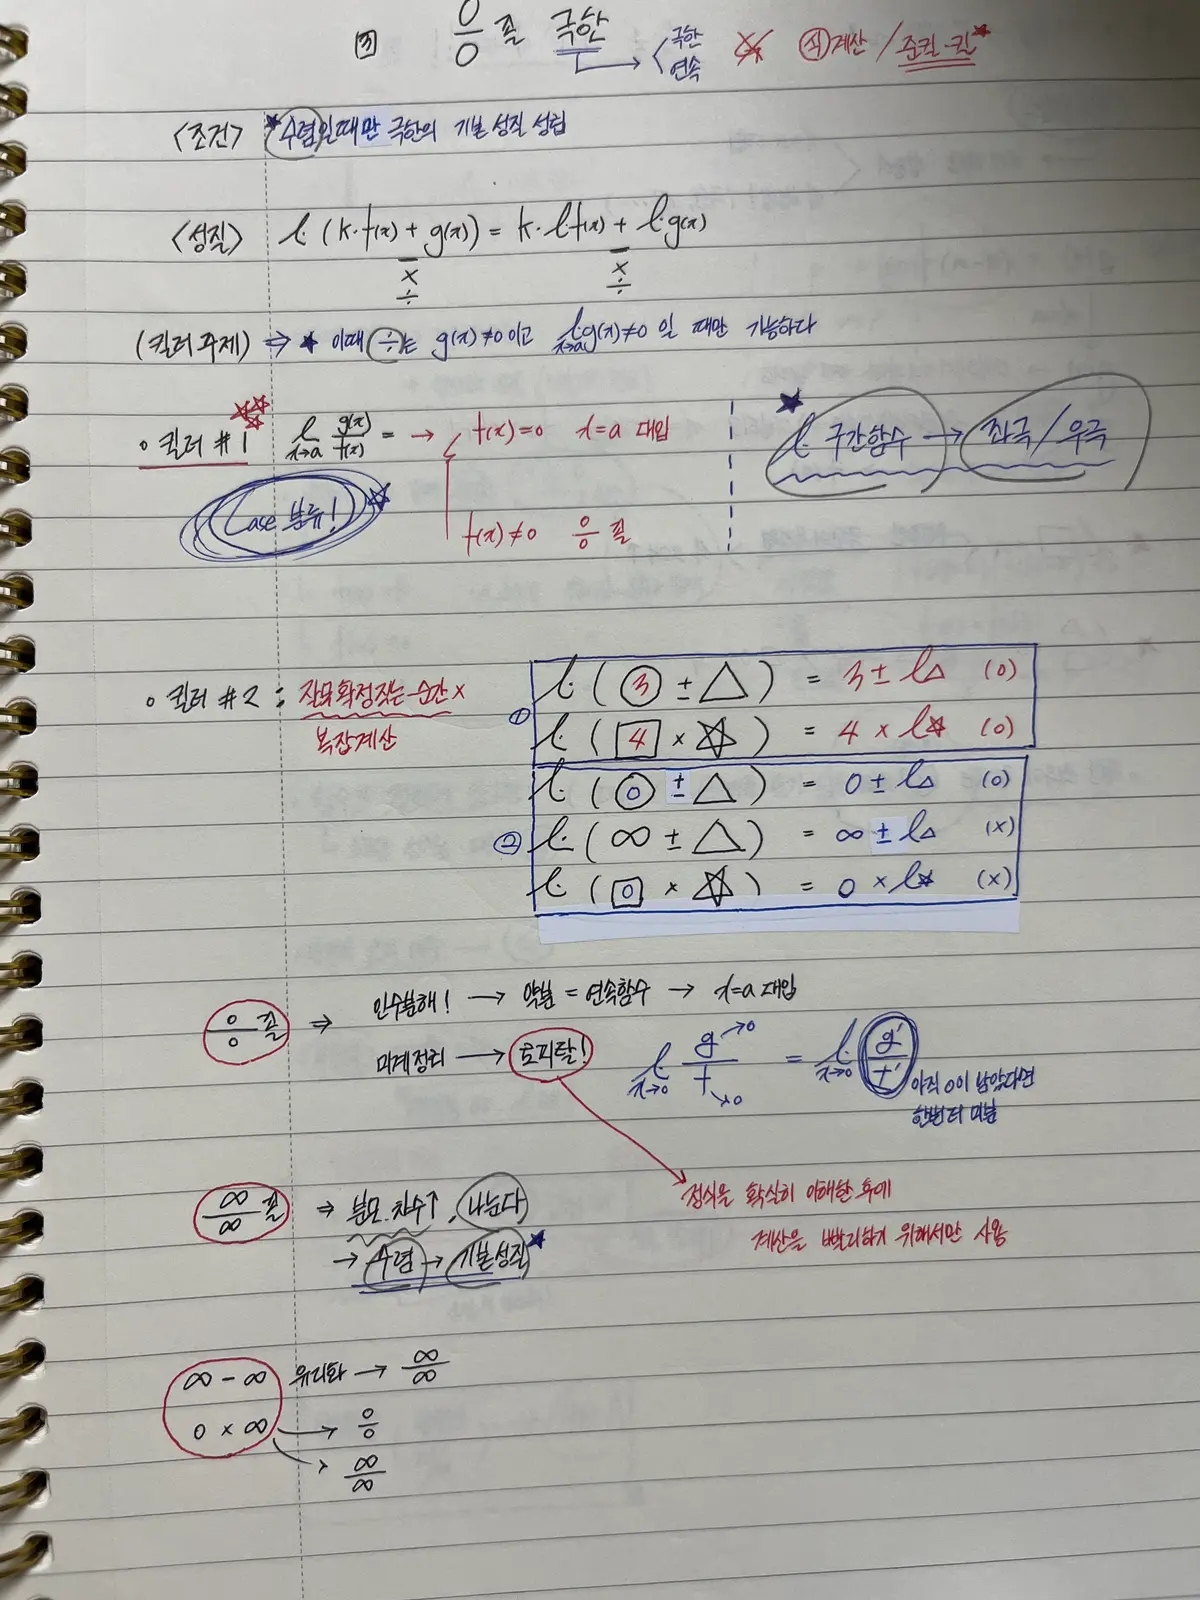 3 0/0 꼴 극한 → 극한 연속 ※ 식 계산 / 준킬·킬
<조건> ★수렴일때만 극한의 기본 성질 성립
<성질> l. (k·f(x) + g(x)) = k·l.f(x) + l.g(x)
- -
× ×
÷ ÷
(킬러 주제) ⇒ ★ 이때 ÷는 g(x)≠0 이고 l. x→a g(x)≠0 일 때만 가능하다
○ 킬러 #1 l. x→a g(x)/f(x) = → f(x)=0 x=a 대입
Case 분류!
f(x)≠0 0/0 꼴
★ l. 구간함수 → 좌극/우극
○ 킬러 #2 : 확정짓는 순간 ×
복잡계산
① l. ( 3 ± △ ) = 3 ± l.△ (o)
l. ( 4 × ☆ ) = 4 × l.☆ (o)
② l. ( 0 ± △ ) = 0 ± l.△ (o)
l. ( ∞ ± △ ) = ∞ ± l.△ (x)
l. ( 0 × ☆ ) = 0 × l.☆ (x)
0/0 꼴 ⇒ 인수분해! → 약분 = 연속함수 → x=a 대입
미계정의 → 로피탈! l. x→0 g→0 / f→0 = l. x→0 g'/f' 아직 0이 남았다면
한번더 미분
정식을 확실히 이해한 후에
계산을 빨리하기 위해서만 사용
∞/∞ 꼴 ⇒ 분모.차수↑, 나눈다
→ 수렴 → 기본성질★
∞ - ∞ 유리화 → ∞/∞
0 × ∞ → 0/0
→ ∞/∞